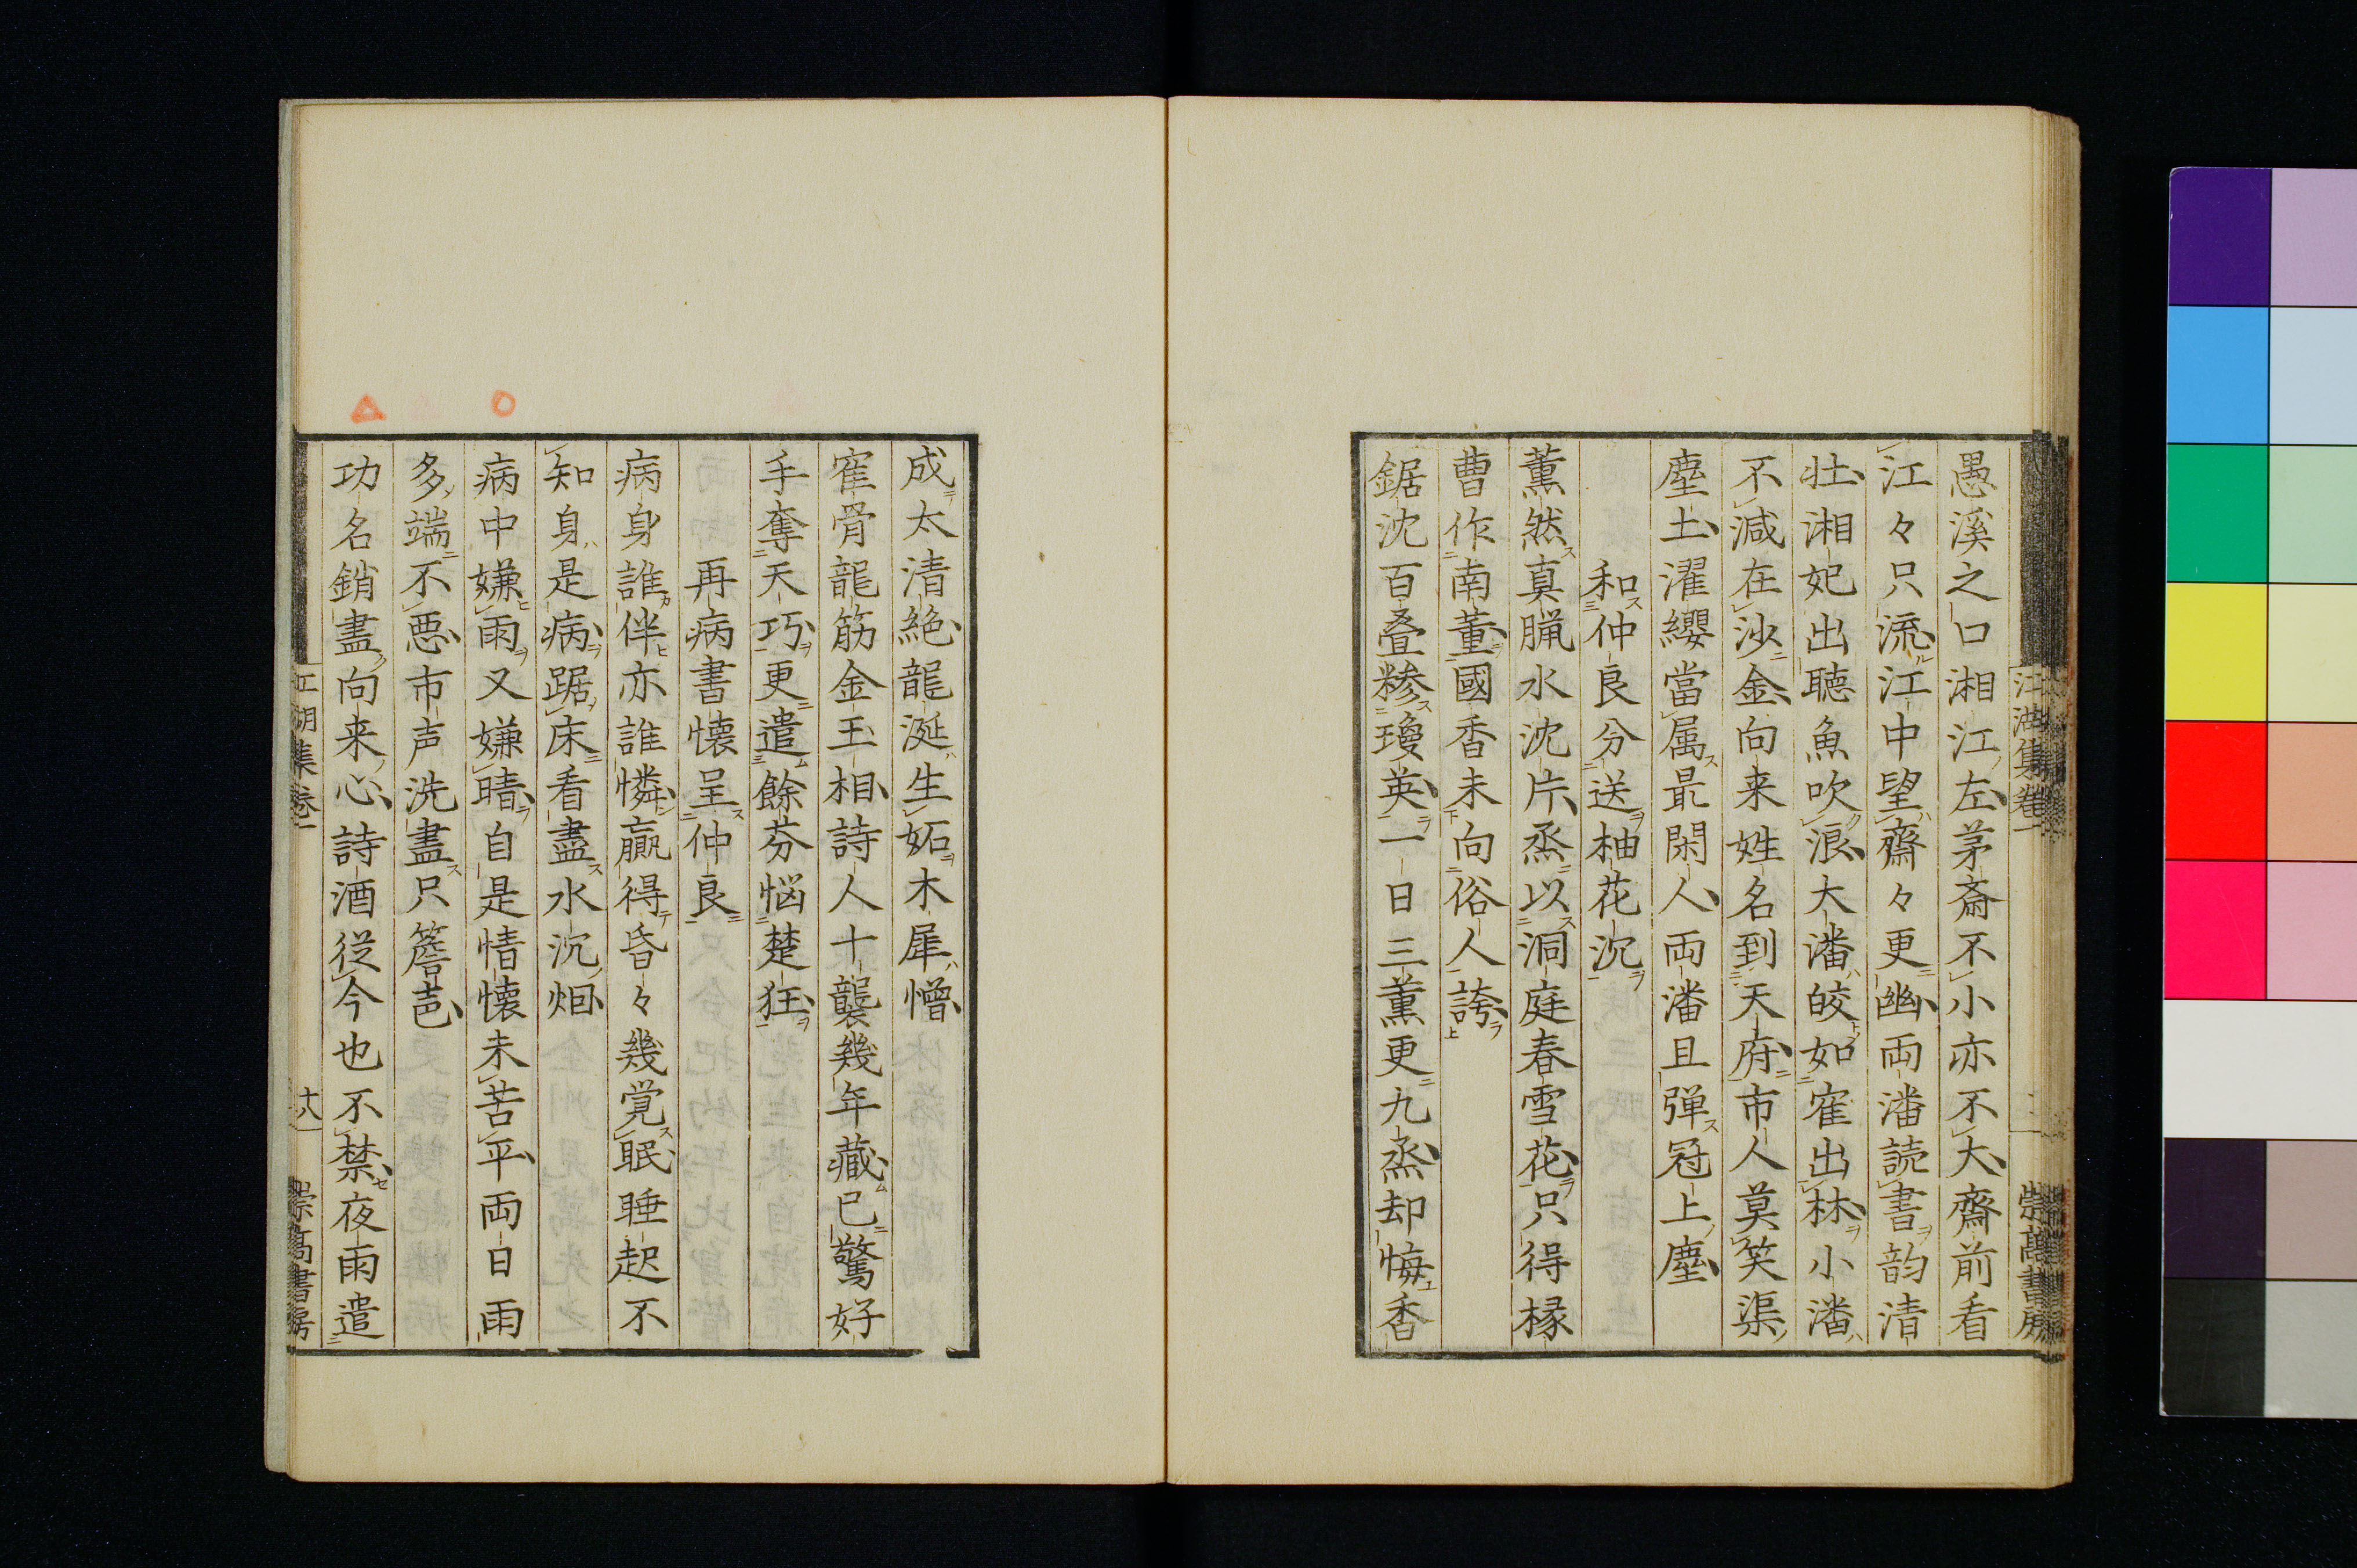 愚溪之口湘江左茅斎不小亦不大齋前看
江々只流江中望齋々更幽両潘読書韵清
壮湘妃出聴魚吹浪大潘皎如寉出林小潘
不減在沙金向来姓名到天府市人莫笑渠
塵土濯纓當属最閑人両潘且弾冠上塵
和仲良分送柚花沉
薫然真腊水沈片烝以洞庭春雪花只得椽
曹作南董國香未向俗人誇
鋸沈百叠糝瓊英一日三薫更九烝却悔香
成太清絶龍涎生妬木犀憎
寉骨龍筋金玉相詩人十襲幾年藏已驚好
手奪天巧更遣餘芬悩楚狂
再病書懐呈仲良
病身誰伴亦誰憐贏得昏々幾覚眠睡起不
知身是病踞床看盡水沉烟
病中嫌雨又嫌晴自是情懐未苦平両日雨
多端不悪市声洗盡只簷声
功名銷盡向来心詩酒従今也不禁夜雨遣
江湖集巻一
十八
崇高書房
江湖集巻一
崇高書房